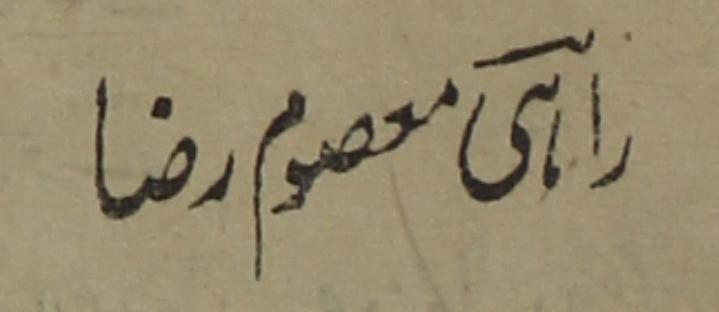 راہی معصوم رضا